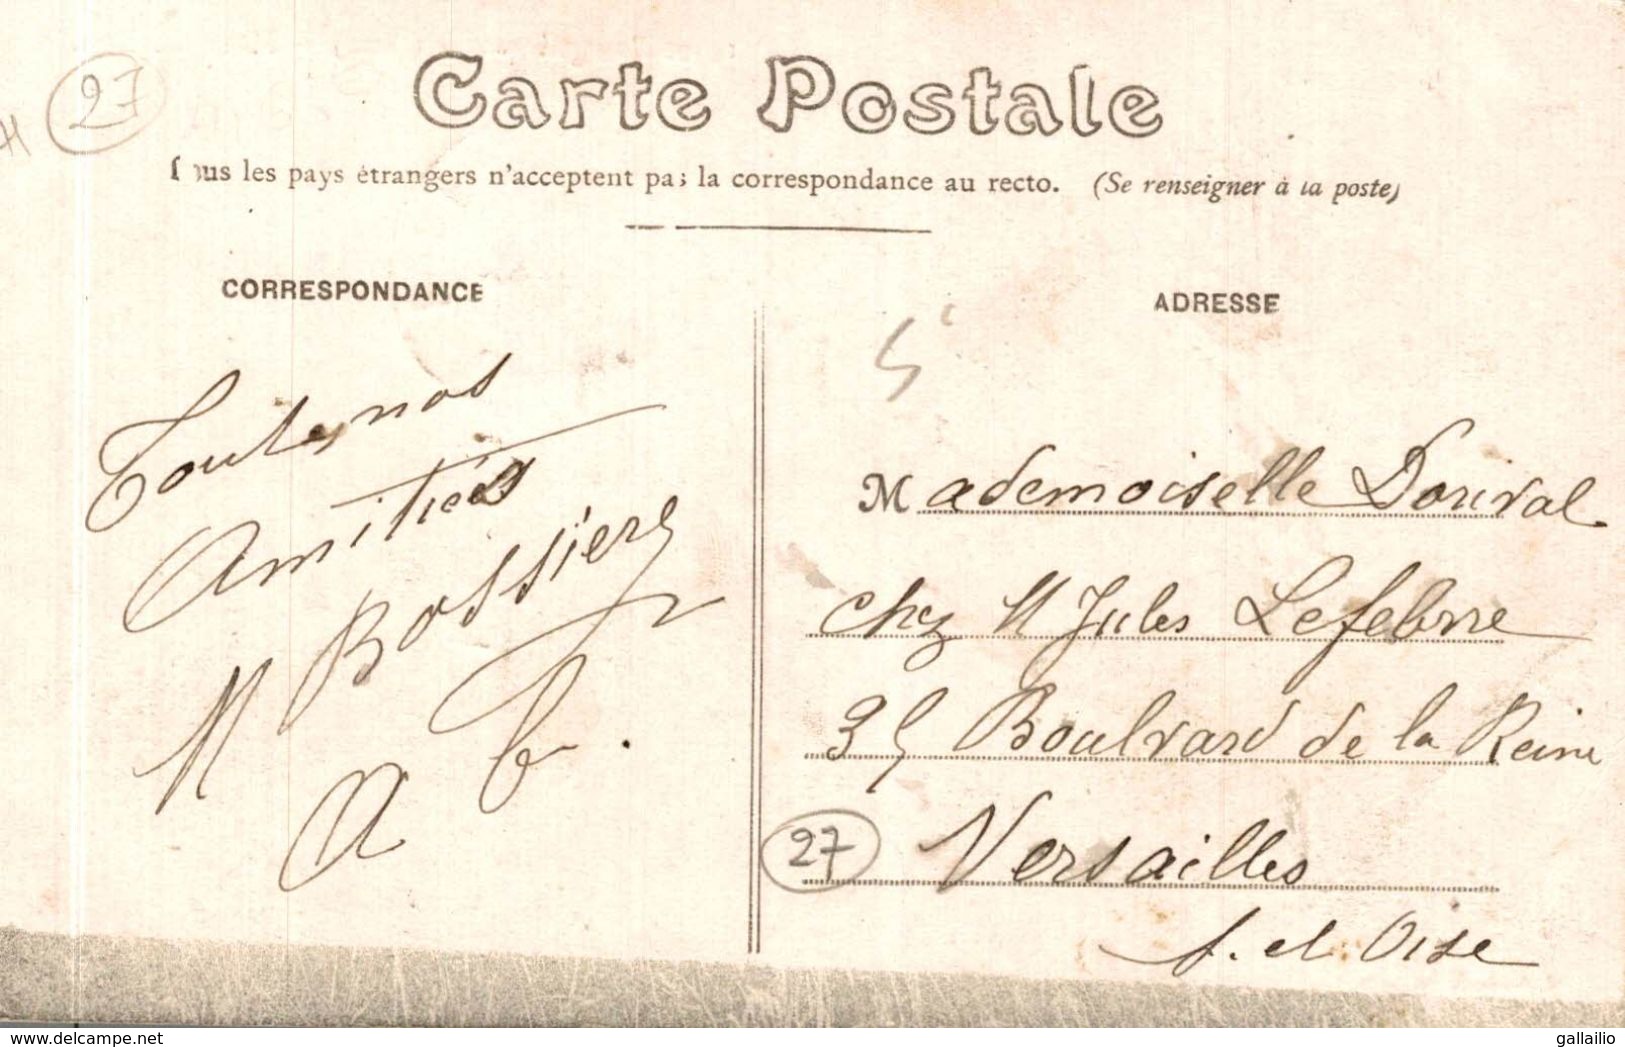 27
Carte Postale
Tous les pays étrangers n'acceptent pas la correspondance au recto. (Se renseigner à la poste)
CORRESPONDANCE
Toute nos
Amitiés
M Bossiere
A
ADRESSE
Mademoiselle Dorival
chez M Jules Lefebvre
35 Boulvard de la Reine
27
Versailles
S. et Oise
www.delcampe.net
gallailio